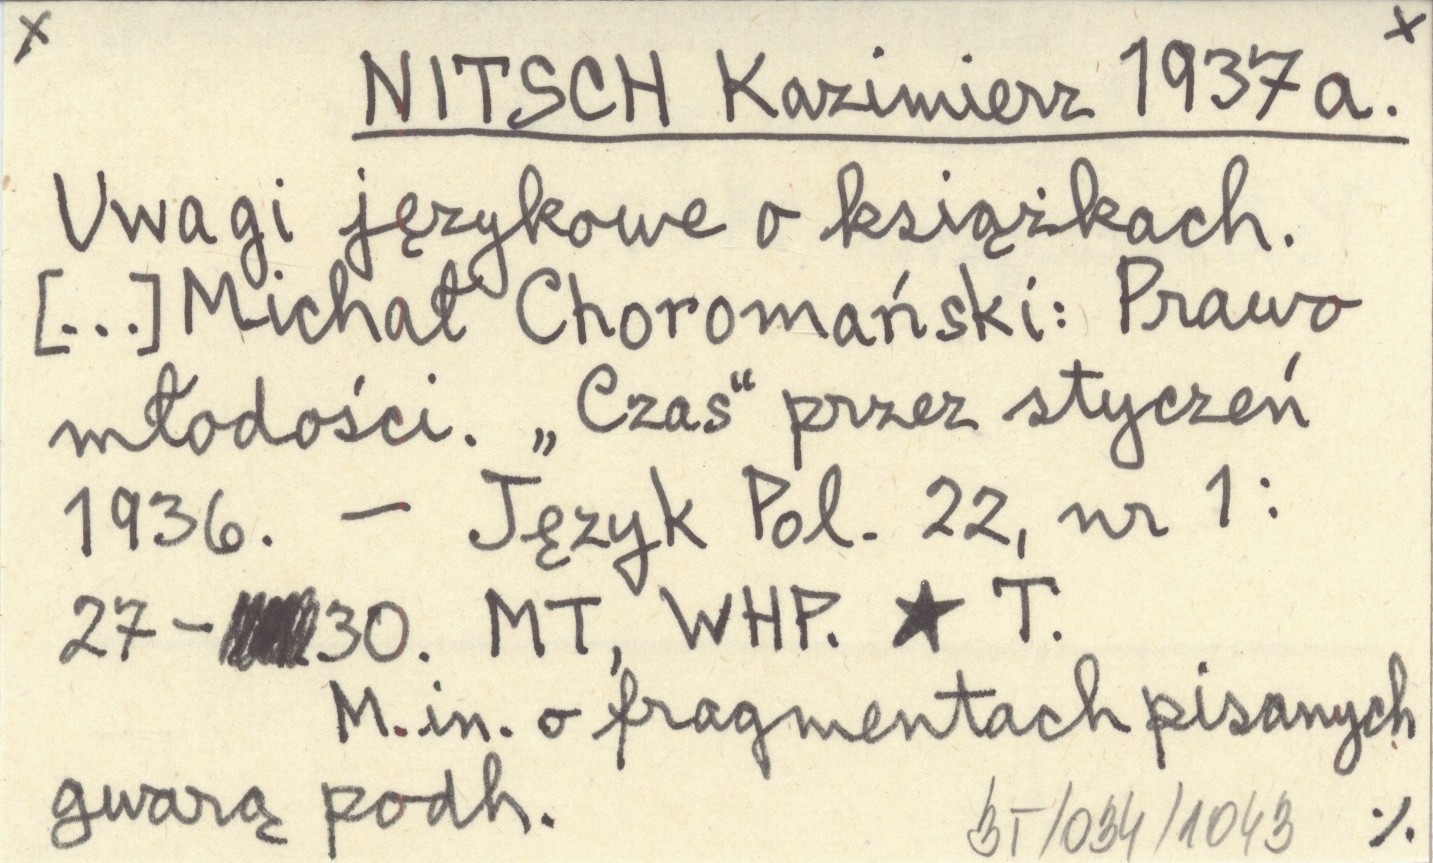 x x
NITSCH Kazimierz 1937a.
Uwagi językowe o książkach.
[...] Michał Choromański: Prawo
młodości. „Czas“ przez styczeń
1936. — Język Pol. 22, nr 1:
27- 30. MT, WHP. ★ T.
M.in. o fragmentach pisanych
gwarą podh.
BT/034/1043 ./.